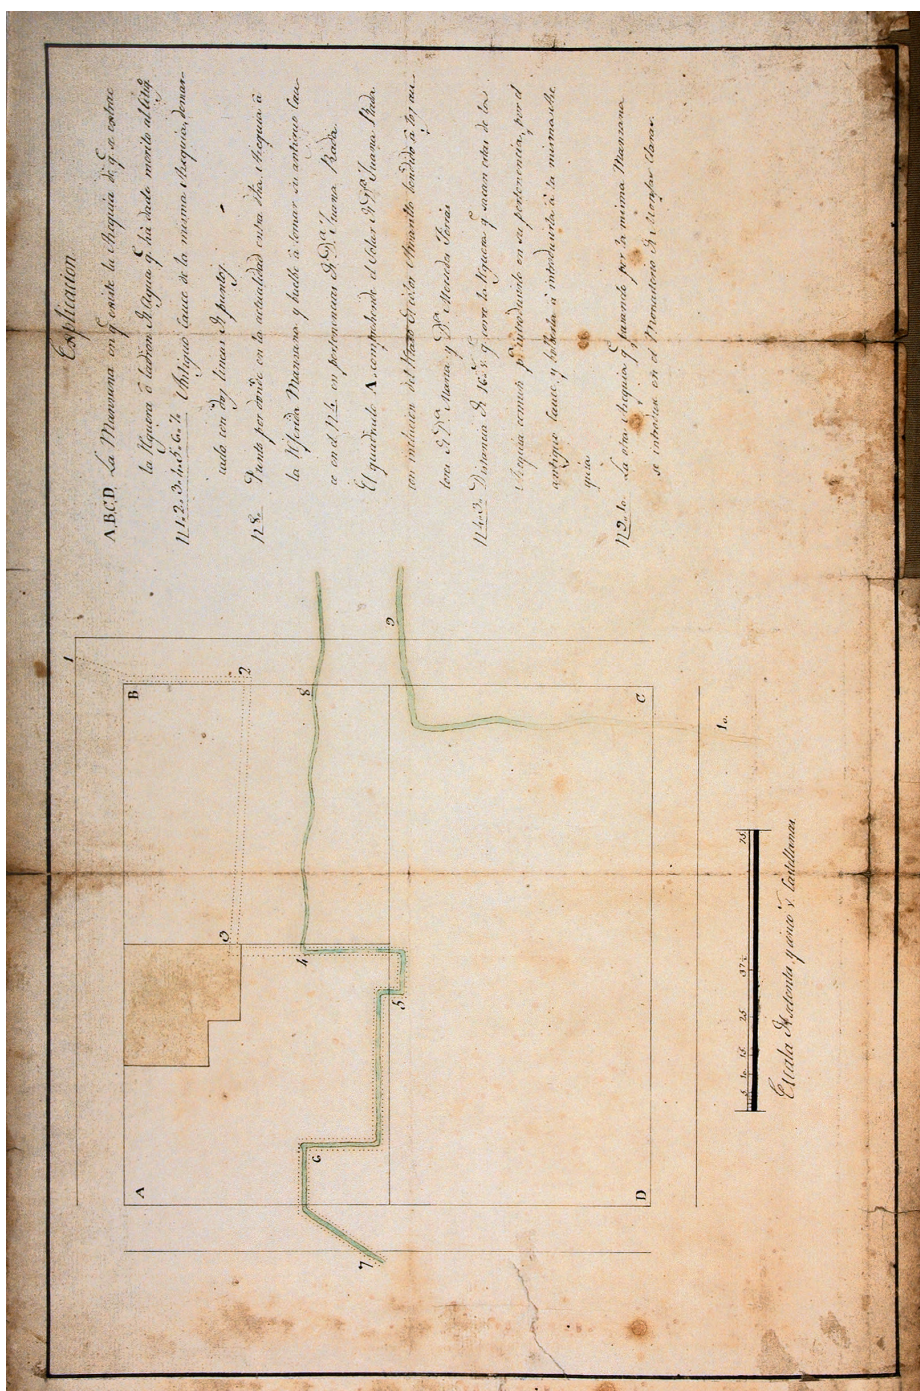 Explicacion
A,B,C,D, La Manzana en q.e existe la Azequia de q.e se extrae
la Reguera ó ladron de Agua q.e há dado merito al litig.o
N 1. 2. 3. 4. 5. 6. 7. Antiguo Cauce de la misma Azequia, demar-
cado con dos lineas de puntos.
N 8. Punto por donde en la actualidad entra dha Azequia à
la referida Manzana y buelbe à tomar su antiguo Cau-
ce en el N 4. en pertenencias de D.a Juana Rada.
El quadrado A. comprehende el Solar de D.a Juana Rada
con inclusion del de color Amarillo vendido à los au-
tora D.a Maria y D.a Merceda
N 4. 3. Distancia de 16 v.s q.e corre la Reguera q.e sacan estas de los
Azequia comun p.a introducirlo en su pertenencia, por el
antiguo Cauce, y bolberla à introducirla à la misma Aze-
quia.
N 9. 10. La otra Azequia q.e pasando por la misma Manzana
se introduce en el Monasterio de Monjas Claras.
1
B
2
8
9
C
10.
3
4
5
6
A
D
7
5. 10. 15. 25. 37½ 75.
Escala de setenta y cinco v.s Castellanas.